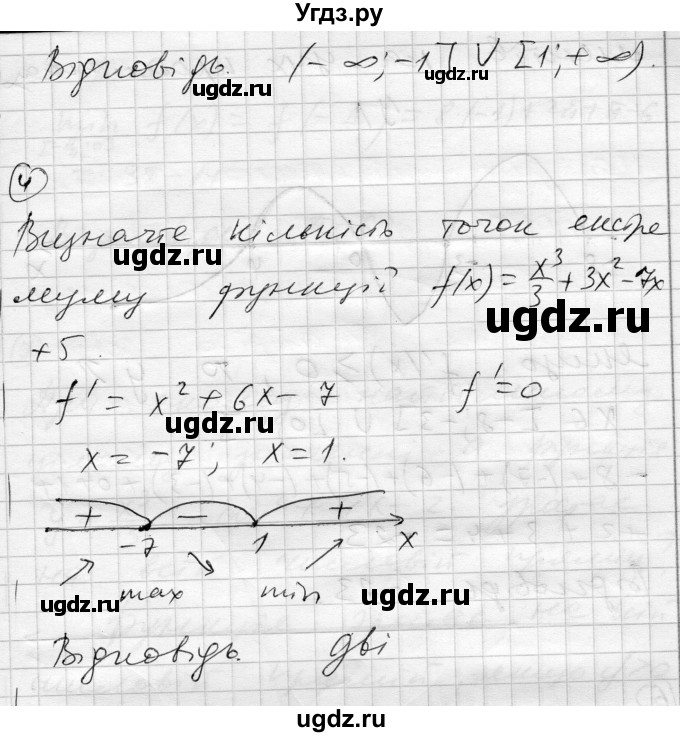 Угдз.ру
Відповідь. (-∞; -1] ∪ [1; +∞).
ugdz.ru ugdz.ru
4
Визначте кількість точок екстре
ugdz.ru ugdz.ru
муму функції f(x) = x³/3 + 3x² - 7x
ugdz.ru
+5.
f' = x² + 6x - 7 f' = 0
x = -7; x = 1.
+ - +
-7 1 x
max min
ugdz.ru ugdz.ru
Відповідь. дві
ugdz.ru